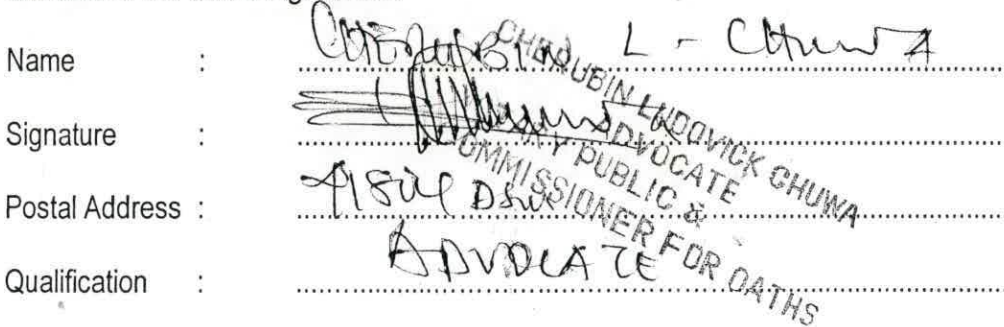 Name : CHERUBIN L - CHUWA
Signature :
Postal Address : DSM
Qualification : ADVOCATE
CHERUBIN LUDOVICK CHUWA
ADVOCATE
PUBLIC &
COMMISSIONER FOR OATHS